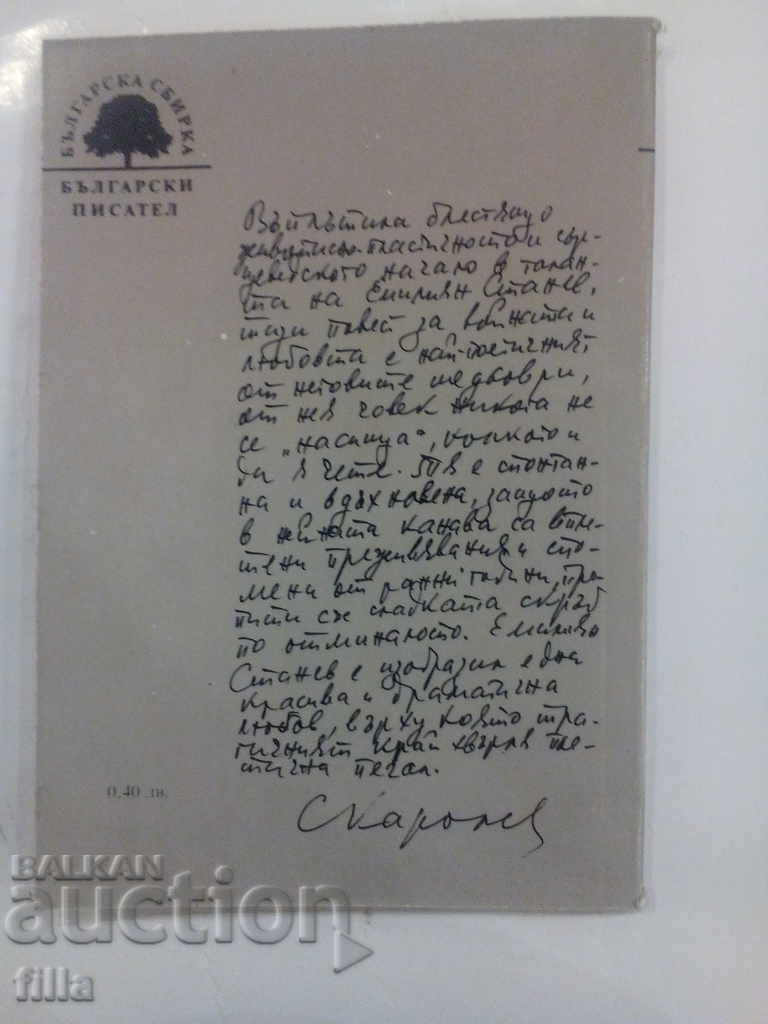 БЪЛГАРСКА СБИРКА
БЪЛГАРСКИ
ПИСАТЕЛ
Въплътила блестящо
живописно-пластичното и сър-
цеведското начало в талан-
та на Емилиян Станев,
тази повест за войната и
любовта е най-поетичният
от неговите шедьоври,
от нея човек никога не
се „насища“, колкото и
да я чете. Тя е спонтан-
на и вдъхновена, защото
в нейната канава са впле-
тени преживявания и спо-
мени от ранни години, про-
пити със сладката скръб
по отминалото. Емилиян
Станев е изобразил една
красива и драматична
любов, върху която тра-
гичният край хвърля пое-
тична печал.
0,40 лв.
BALKAN
auction
filla